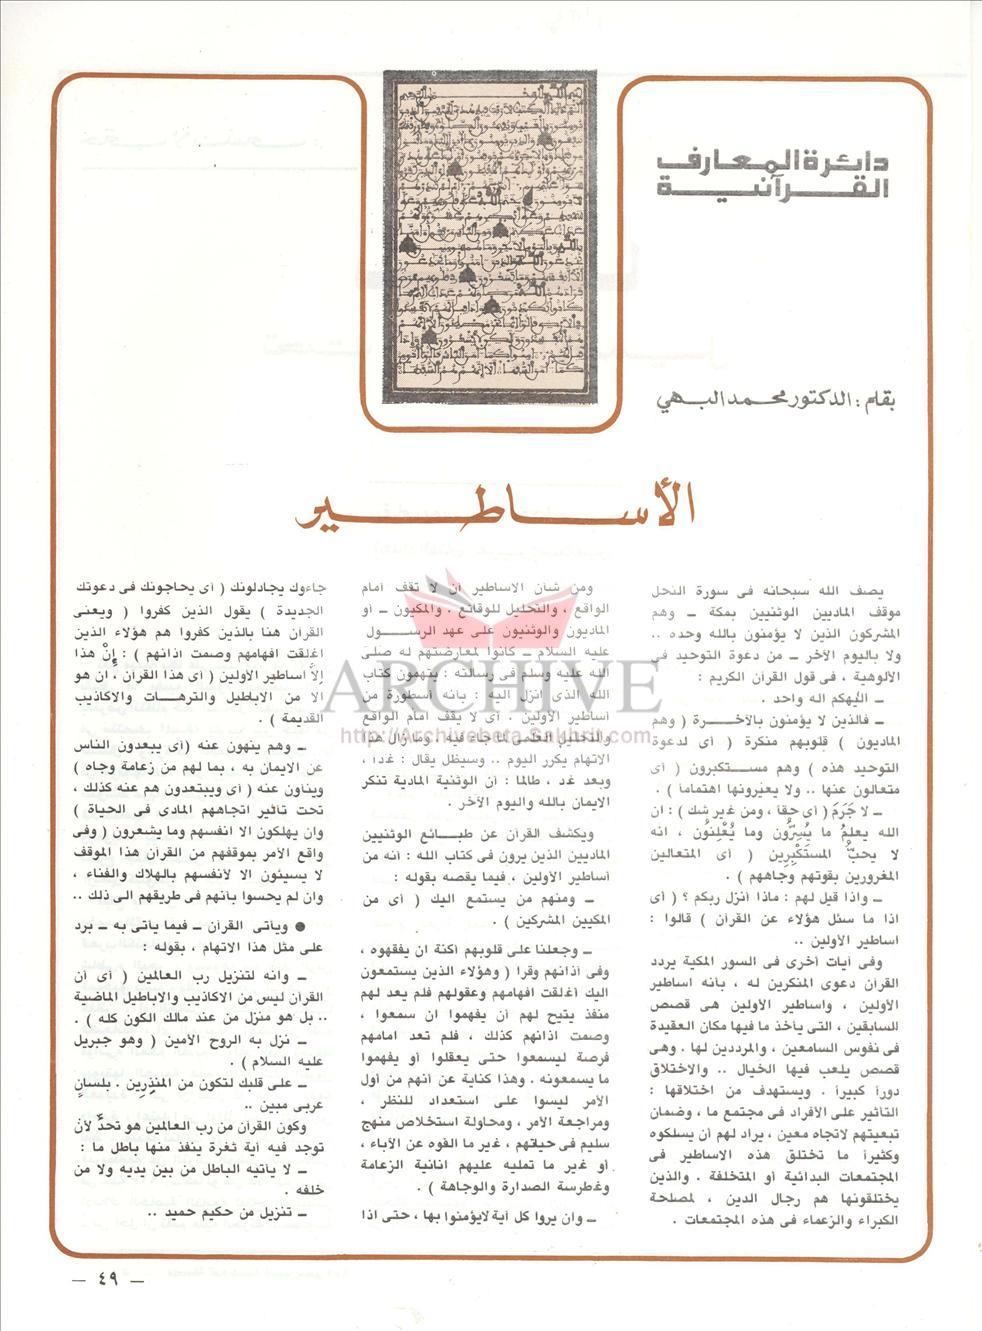 دائرة المعارف
القرآنية
بقلم : الدكتور محمد البهي
الأساطير
يصف الله سبحانه فى سورة النحل
موقف الماديين الوثنيين بمكة ــ وهم
المشركون الذين لا يؤمنون بالله وحده ..
ولا باليوم الآخر ــ من دعوة التوحيد فى
الألوهية ، فى قول القرآن الكريم :
ــ الٰهكم اله واحد .
ــ فالذين لا يؤمنون بالآخــرة ( وهم
الماديون ) قلوبهم منكرة ( أى لدعوة
التوحيد هذه ) وهم مستكبرون ( أى
متعالون عنها .. ولا يعيرونها اهتماما ) .
ــ لا جَرَمَ ( أى حقا ، ومن غير شك ) : ان
الله يعلمُ ما يُسِرُّون وما يُعْلِنُون ، انه
لا يحبُّ المستَكْبِرِين ( أى المتعالين
المغرورين بقوتهم وجاههم ) .
ــ واذا قيل لهم : ماذا أنزل ربكم ؟ ( أى
اذا ما سئل هؤلاء عن القرآن ) قالوا :
اساطير الأولين ..
وفى آيات أخرى فى السور المكية يردد
القرآن دعوى المنكرين له ، بأنه اساطير
الأولين ، وأساطير الأولين هى قصص
للسابقين ، التى يأخذ ما فيها مكان العقيدة
فى نفوس السامعين ، والمرددين لها . وهى
قصص يلعب فيها الخيال .. والاختلاق
دوراً كبيراً . ويستهدف من اختلاقها :
التأثير على الأفراد فى مجتمع ما ، وضمان
تبعيتهم لاتجاه معين ، يراد لهم أن يسلكوه
وكثيراً ما تختلق هذه الاساطير فى
المجتمعات البدائية أو المتخلفة . والذين
يختلقونها هم رجال الدين ، لمصلحة
الكبراء والزعماء فى هذه المجتمعات .
ومن شأن الاساطير ان لا تقف أمام
الواقع ، والتحليل للوقائع . والمكيون ــ أو
الماديون والوثنيون على عهد الرســول
عليه السلام ــ كانوا لمعارضتهم له صلى
الله عليه وسلم فى رسالته : يتهمون كتاب
الله الذى انزل اليه : بأنه أسطورة من
أساطير الأولين . أى لا يقف امام الواقع
والتحليل العلمى لما جاء فيه ، وما زال هذا
الاتهام يكرر اليوم .. وسيظل يقال : غداً ،
وبعد غد ، طالما : أن الوثنية المادية تنكر
الايمان بالله واليوم الآخر .
ويكشف القرآن عن طبــائع الوثنيين
الماديين الذين يرون فى كتاب الله : انه من
أساطير الأولين ، فيما يقصه بقوله :
ــ ومنهم من يستمع اليك ( أى من
المكيين المشركين ) .
ــ وجعلنا على قلوبهم أكنة ان يفقهوه ،
وفى آذانهم وقرا ( وهؤلاء الذين يستمعون
اليك أغلقت افهامهم وعقولهم فلم يعد لهم
منفذ يتيح لهم أن يفهموا ان سمعوا ،
وصمت اذانهم كذلك ، فلم تعد امامهم
فرصة ليسمعوا حتى يعقلوا أو يفهموا
ما يسمعونه . وهذا كناية عن أنهم من أول
الأمر ليسوا على استعداد للنظر ،
ومراجعة الأمر ، ومحاولة استخلاص منهج
سليم فى حياتهم ، غير ما الفوه عن الآباء ،
أو غير ما تمليه عليهم انانية الزعامة
وغطرسة الصدارة والوجاهة ) .
ــ وان يروا كل آية لايؤمنوا بها ، حتى اذا
جاءوك يجادلونك ( أى يحاجونك فى دعوتك
الجديدة ) يقول الذين كفروا ( ويعنى
القرآن هنا بالذين كفروا هم هؤلاء الذين
اغلقت افهامهم وصمت اذانهم ) : إنْ هذا
إلاَّ أساطير الأولين ( أى هذا القرآن ، ان هو
الا من الاباطيل والترهــات والاكاذيب
القديمة ) .
ــ وهم ينهون عنه (أى يبعدون الناس
عن الايمان به ، بما لهم من زعامة وجاه )
وينأون عنه ( أى ويبتعدون هم عنه كذلك ،
تحت تأثير اتجاههم المادى فى الحياة )
وان يهلكون الا انفسهم وما يشعرون ( وفى
واقع الأمر بموقفهم من القرآن هذا الموقف
لا يسيئون الا لأنفسهم بالهلاك والفناء ،
وان لم يحسوا بأنهم فى طريقهم الى ذلك ..
● ويأتى القرآن ــ فيما يأتى به ــ برد
على مثل هذا الاتهام ، بقوله :
ــ وانه لتنزيل رب العالمين ( أى أن
القرآن ليس من الاكاذيب والاباطيل الماضية
.. بل هو منزل من عند مالك الكون كله ) .
ــ نزل به الروح الأمين ( وهو جبريل
عليه السلام ) .
ــ على قلبك لتكون من المنذِرِين . بلسانٍ
عربى مبين ..
وكون القرآن من رب العالمين هو تحدٍّ لأن
توجد فيه أية ثغرة ينفذ منها باطل ما :
ــ لا يأتيه الباطل من بين يديه ولا من
خلفه .
ــ تنزيل من حكيم حميد ..
ــ ٤٩ ــ
ARCHIVE
http://Archivebeta.Sakhrit.com